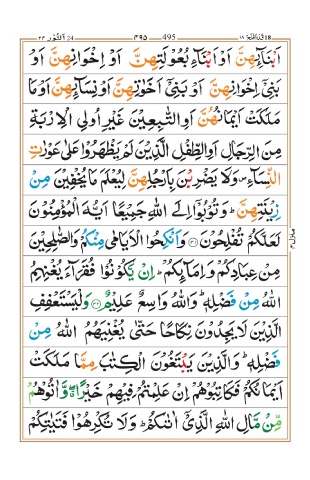 قد افلح ۱۸ 495 ۴۹۵ النّور 24
اَبْنَآئِهِنَّ اَوْ اَبْنَآءِ بُعُوْلَتِهِنَّ اَوْ اِخْوَانِهِنَّ اَوْ
بَنِیْۤ اِخْوَانِهِنَّ اَوْ بَنِیْۤ اَخَوٰتِهِنَّ اَوْ نِسَآئِهِنَّ اَوْ مَا
مَلَكَتْ اَیْمَانُهُنَّ اَوِ التّٰبِعِیْنَ غَیْرِ اُولِی الْاِرْبَةِ
مِنَ الرِّجَالِ اَوِ الطِّفْلِ الَّذِیْنَ لَمْ یَظْهَرُوْا عَلٰی عَوْرٰتِ
النِّسَآءِ۪ وَلَا یَضْرِبْنَ بِاَرْجُلِهِنَّ لِیُعْلَمَ مَا یُخْفِیْنَ مِنْ
زِیْنَتِهِنَّؕ وَتُوْبُوْۤا اِلَی اللّٰهِ جَمِیْعًا اَیُّهَ الْمُؤْمِنُوْنَ
لَعَلَّكُمْ تُفْلِحُوْنَ۝۳۱ وَاَنْكِحُوا الْاَیَامٰی مِنْكُمْ وَالصّٰلِحِیْنَ
مِنْ عِبَادِكُمْ وَاِمَآئِكُمْؕ اِنْ یَّكُوْنُوْا فُقَرَآءَ یُغْنِهِمُ
اللّٰهُ مِنْ فَضْلِهٖؕ وَاللّٰهُ وَاسِعٌ عَلِیْمٌ۝۳۲ وَلْیَسْتَعْفِفِ
الَّذِیْنَ لَا یَجِدُوْنَ نِكَاحًا حَتّٰی یُغْنِیَهُمُ اللّٰهُ مِنْ
فَضْلِهٖؕ وَالَّذِیْنَ یَبْتَغُوْنَ الْكِتٰبَ مِمَّا مَلَكَتْ
اَیْمَانُكُمْ فَكَاتِبُوْهُمْ اِنْ عَلِمْتُمْ فِیْهِمْ خَیْرًا ۖۗ وَّاٰتُوْهُمْ
مِّنْ مَّالِ اللّٰهِ الَّذِیْۤ اٰتٰىكُمْؕ وَلَا تُكْرِهُوْا فَتَیٰتِكُمْ